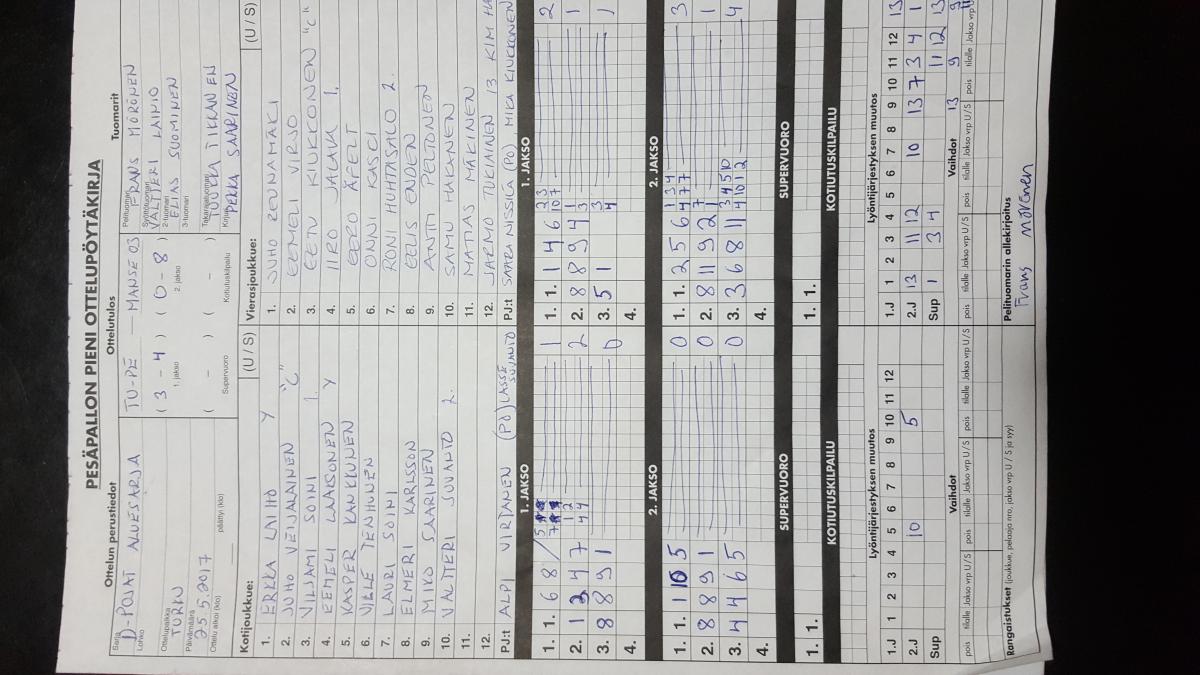 PESÄPALLON PIENI OTTELUPÖYTÄKIRJA
Ottelun perustiedot
Ottelutulos
Tuomarit
Sarja
D-POJAT ALUESARJA
Lohko
Ottelupaikka
TURKU
Päivämäärä
25.5.2017
Ottelu alkoi (klo)
päättyi (klo)
TU-PE — MANSE 03
( 3 - 4 ) ( 0 - 8 )
1. jakso
2. jakso
( - ) ( - )
Supervuoro
Kotiutuskilpailu
Pelituomari
FRANS MÖRÖNEN
Syöttötuomari
VALTTERI LAINIO
2-tuomari
ELIAS SUOMINEN
3-tuomari
Takarajatuomari
TUUKKA TIKKANEN
Kirjuri
PEKKA SAARINEN
Kotijoukkue:
(U / S)
1. ERKKA LAIHO Y
2. JUHO VEIJALAINEN "C"
3. VILJAMI SOINI 1.
4. EEMELI LAAKSONEN Y
5. KASPER KANKKUNEN
6. VILLE TENHUNEN
7. LAURI SOINI
8. ELMERI KARLSSON
9. MIKO SAARINEN
10. VALTTERI SUVANTO 2.
11.
12.
PJ:t ALPI VIRJANEN (PO) LASSE SUVANTO
Vierasjoukkue:
(U / S)
1. JUHO ZEUNAMÄKI
2. EEMELI VIRJO
3. EETU KIUKKONEN "C"
4. IIRO JALAVA 1.
5. EERO ÄFELT
6. ONNI KASCI
7. RONI HUHTASALO 2.
8. EELIS ENDEN
9. ANTTI PELTONEN
10. SAMU HAKANEN
11. MATIAS MÄKINEN
12. JARMO TUKIAINEN 13 KIM
PJ:t SAARA NISSILÄ (PO), MIKA KIUKKONEN
1. JAKSO
1. 1. 6 8
1
2. 1 3 4 7
2
3. 8 8 9 1
0
4.
1. JAKSO
1. 1. 1 4 6
2
2. 8 8 9 4
1
3. 5 1
1
4.
2. JAKSO
1. 1. 1 10 5
0
2. 8 8 9 1
0
3. 4 4 6 5
0
4.
2. JAKSO
1. 1. 2 5 6
3
2. 8 11 9 2
1
3. 3 6 8 11
4
4.
SUPERVUORO
1. 1.
SUPERVUORO
1. 1.
KOTIUTUSKILPAILU
KOTIUTUSKILPAILU
Lyöntijärjestyksen muutos
1.J 1 2 3 4 5 6 7 8 9 10 11 12
2.J 10 5
Sup
Vaihdot
pois tilalle Jakso vrp U / S pois tilalle Jakso vrp U / S pois tilalle Jakso vrp U / S
Lyöntijärjestyksen muutos
1.J 1 2 3 4 5 6 7 8 9 10 11 12 13
2.J 13 11 12 10 13 7 3 4 1
Sup 1 3 4 11 12 13
Vaihdot
13 9
pois tilalle Jakso vrp U / S pois tilalle Jakso vrp U / S pois tilalle Jakso vrp
Rangaistukset (joukkue, pelaaja nro, jakso vrp U / S ja syy)
Pelituomarin allekirjoitus
Frans Mörönen